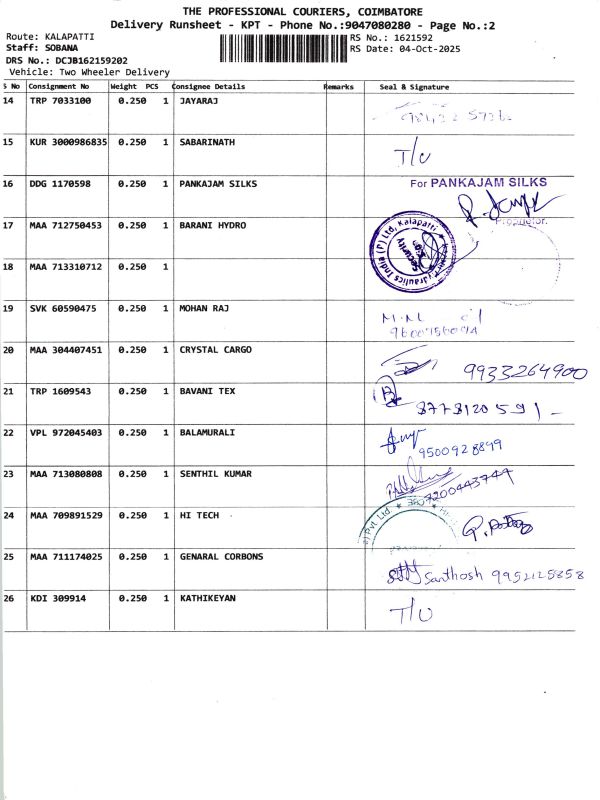 THE PROFESSIONAL COURIERS, COIMBATORE
Delivery Runsheet - KPT - Phone No.:9047080280 - Page No.:2
Route: KALAPATTI
Staff: SOBANA
DRS No.: DCJB162159202
Vehicle: Two Wheeler Delivery
RS No.: 1621592
RS Date: 04-Oct-2025
S No Consignment No Weight PCS Consignee Details Remarks Seal & Signature
14 TRP 7033100 0.250 1 JAYARAJ
15 KUR 3000986835 0.250 1 SABARINATH T/U
16 DDG 1170598 0.250 1 PANKAJAM SILKS For PANKAJAM SILKS
Proprietor.
17 MAA 712750453 0.250 1 BARANI HYDRO
Hydraulics India (P) Ltd, Kalapatti
Security
Sign
18 MAA 713310712 0.250 1
19 SVK 60590475 0.250 1 MOHAN RAJ
20 MAA 304407451 0.250 1 CRYSTAL CARGO 9933264900
21 TRP 1609543 0.250 1 BAVANI TEX 8778120591
22 VPL 972045403 0.250 1 BALAMURALI 9500928899
23 MAA 713080808 0.250 1 SENTHIL KUMAR 7200443744
24 MAA 709891529 0.250 1 HI TECH
Pvt Ltd
25 MAA 711174025 0.250 1 GENARAL CORBONS Santhosh 9952125858
26 KDI 309914 0.250 1 KATHIKEYAN T/U